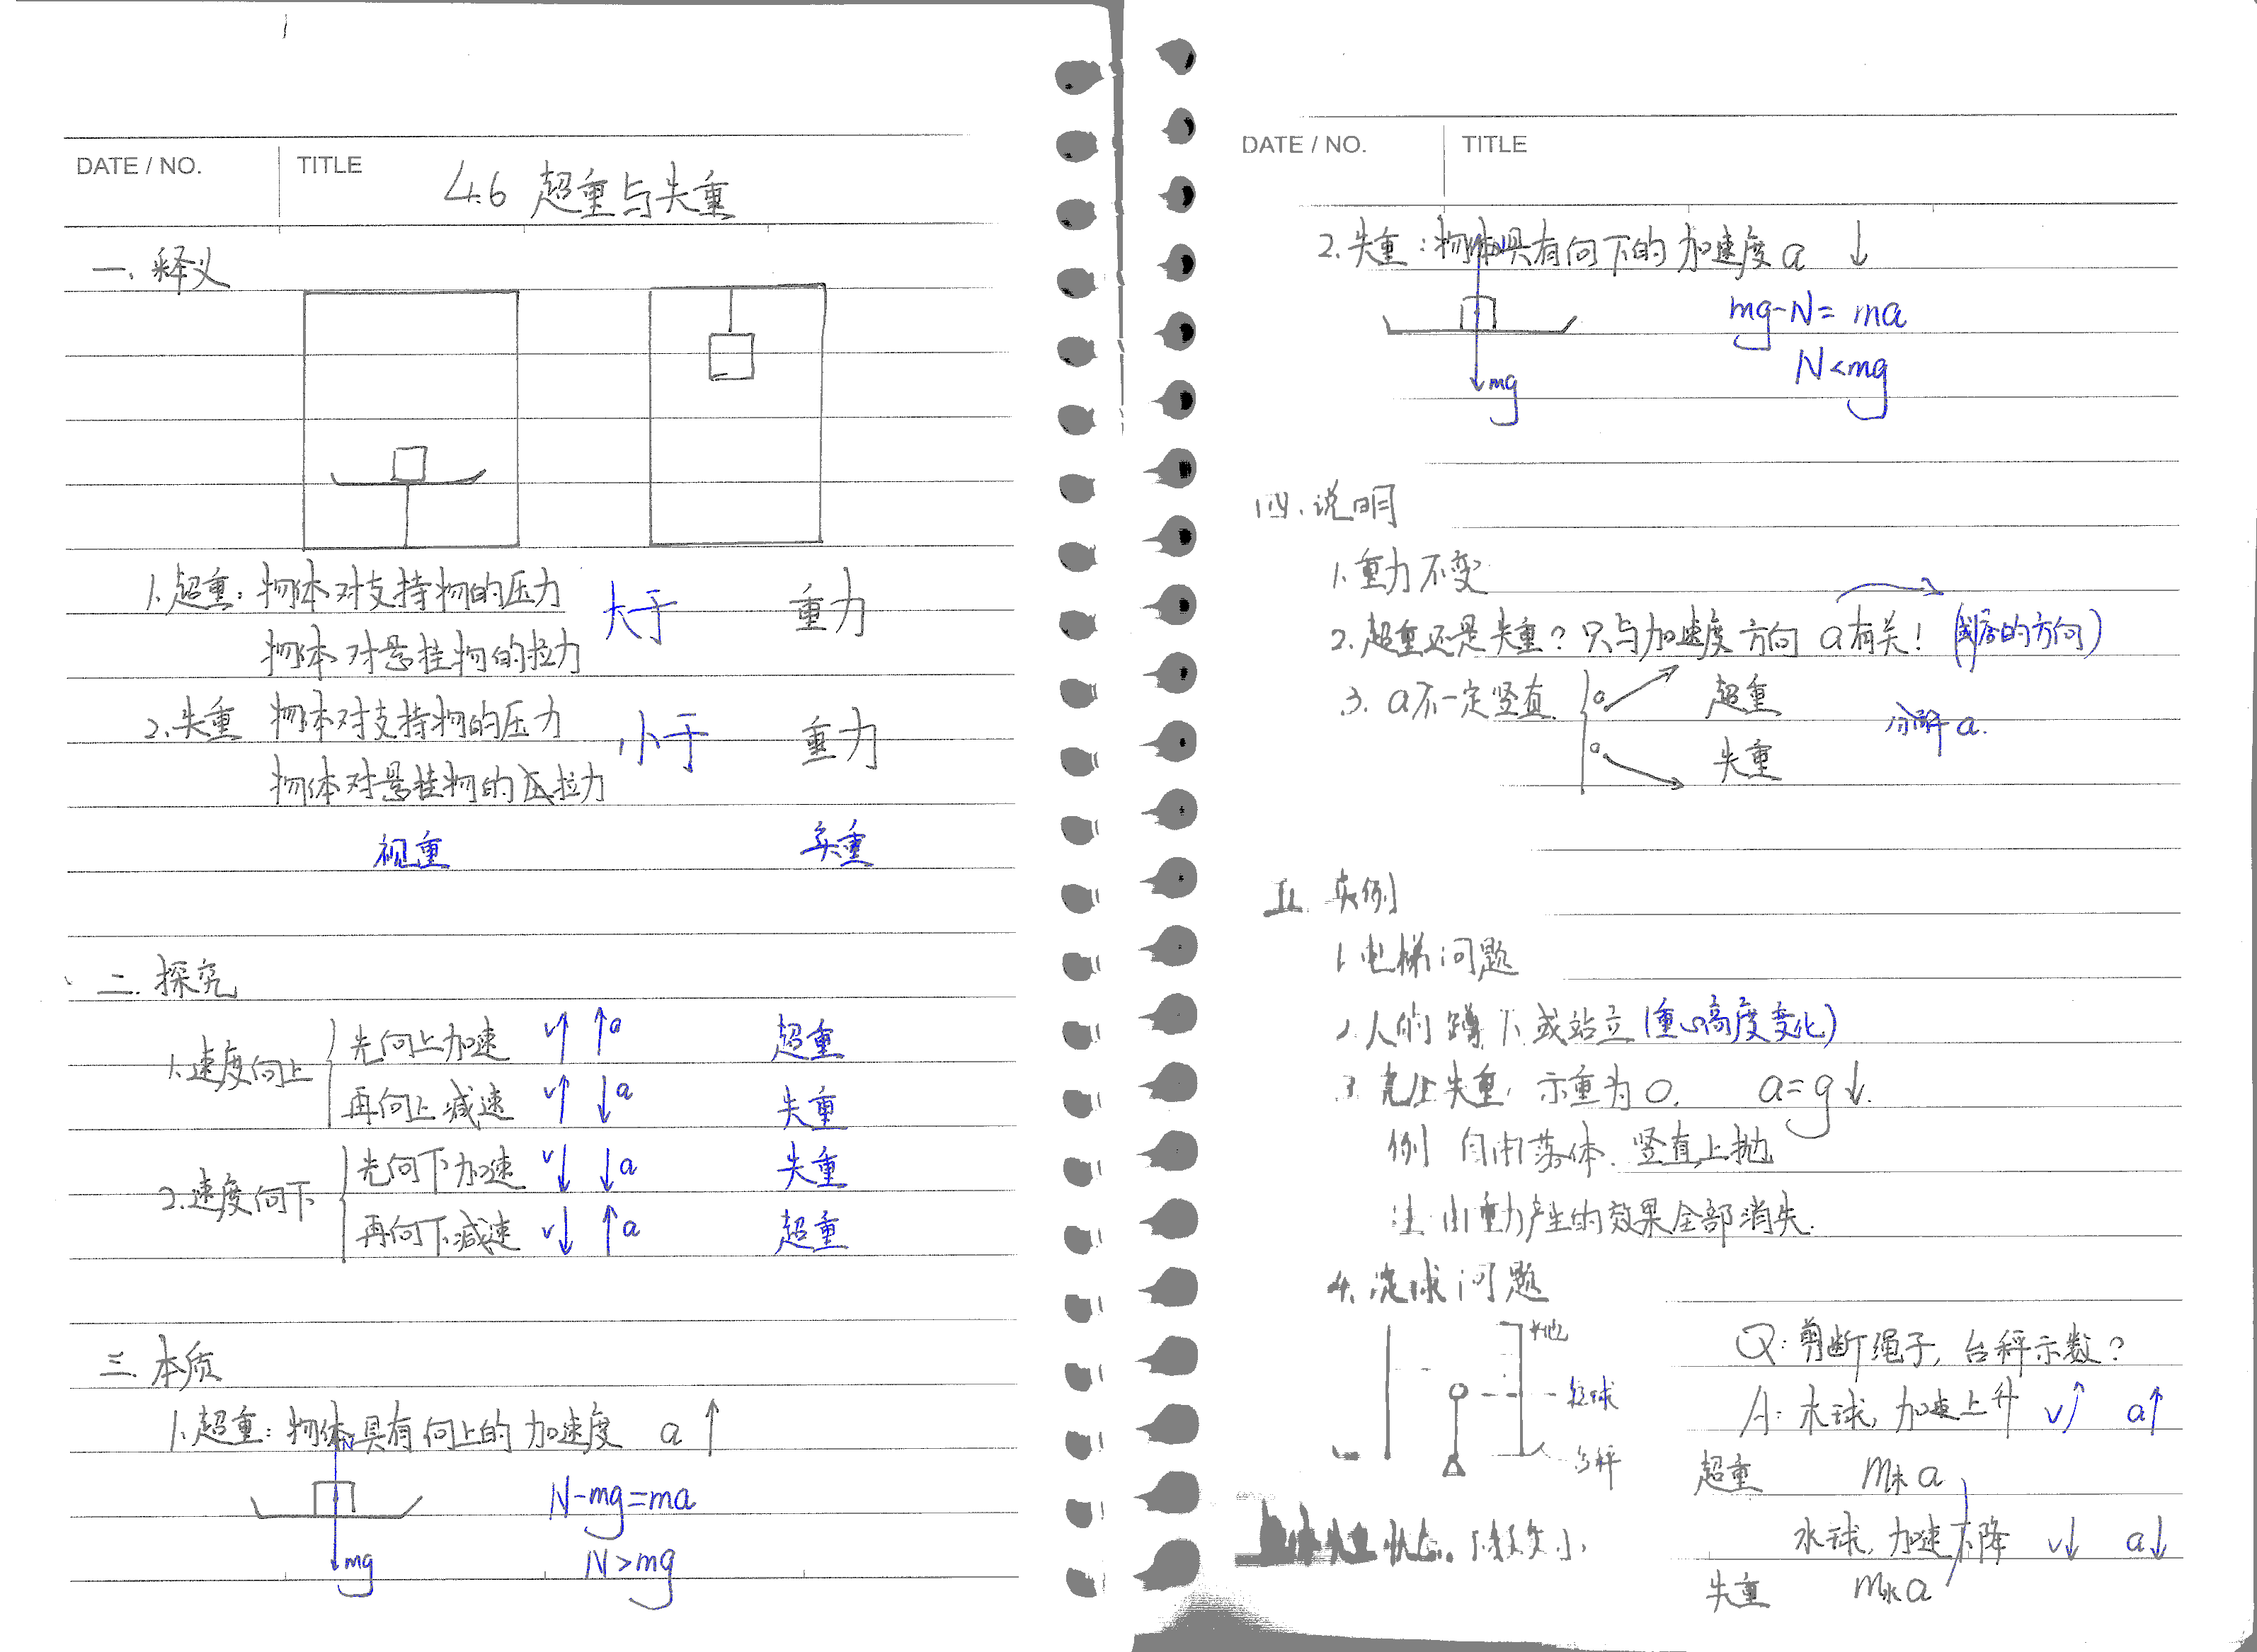 DATE / NO. TITLE 4.6 超重与失重
一. 释义
1.超重: 物体对支持物的压力 大于 重力
物体对悬挂物的拉力
2.失重 物体对支持物的压力 小于 重力
物体对悬挂物的拉力
视重 实重
二. 探究
1.速度向上 先向上加速 v↑ ↑a 超重
再向上减速 v↑ ↓a 失重
2.速度向下 先向下加速 v↓ ↓a 失重
再向下减速 v↓ ↑a 超重
三. 本质
1.超重: 物体具有向上的加速度 a ↑
N
N-mg=ma
N>mg
mg
DATE / NO. TITLE
2.失重: 物体具有向下的加速度a ↓
N
mg-N=ma
N<mg
mg
四. 说明
1.重力不变
2.超重还是失重? 只与加速度方向 a有关! (的方向)
3. a不一定竖直 a 超重
分解a.
a 失重
五 实例
1.电梯问题
2.人的蹲下或站立(重心高度变化)
3.完全失重, 示重为0. a=g↓.
例 自由落体. 竖直上抛
注 由重力产生的效果全部消失.
4. 问题
Q: 剪断绳子, 台秤示数?
台秤
A: 木球, 加速上升 v↑ a↑
超重 m木a
水球, 加速下降 v↓ a↓
失重 m水a